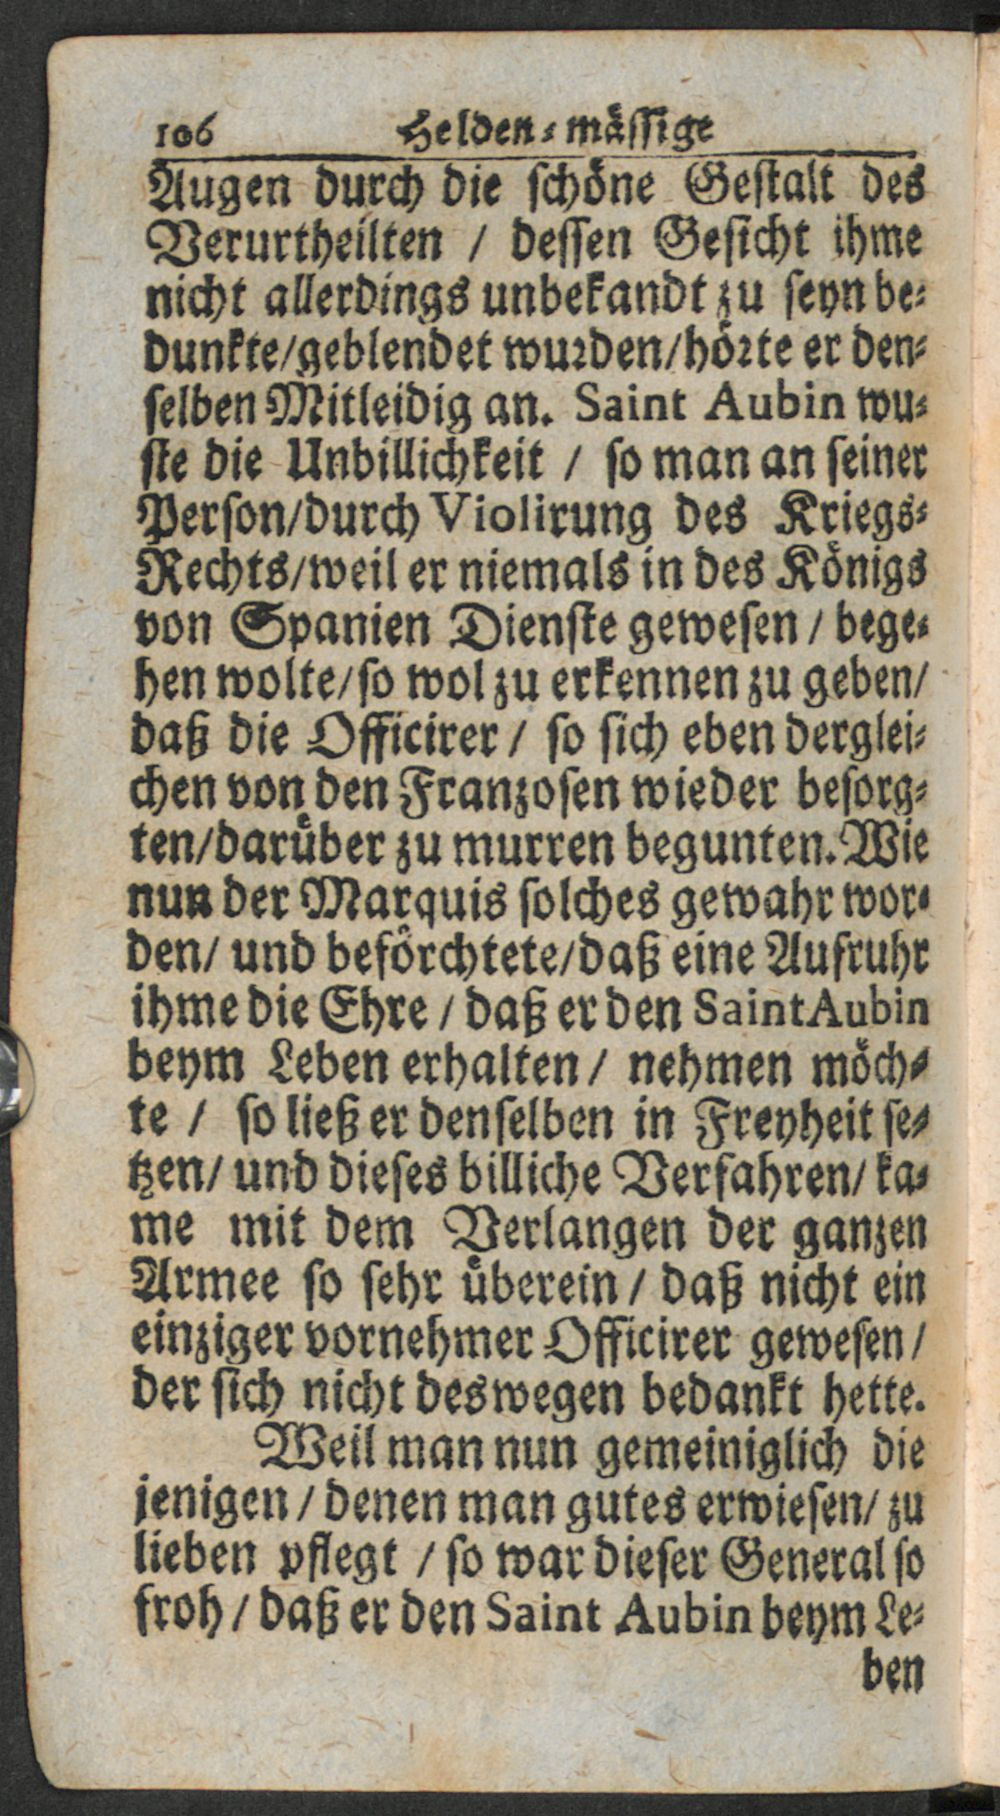 106 Helden⸗mässige
Augen durch die schöne Gestalt des
Verurtheilten / dessen Gesicht ihme
nicht allerdings unbekandt zu seyn be⸗
dunkte/geblendet wurden/hörte er den⸗
selben Mitleidig an. Saint Aubin wu⸗
ste die Unbillichkeit / so man an seiner
Person/durch Violirung des Kriegs⸗
Rechts/weil er niemals in des Königs
von Spanien Dienste gewesen / bege⸗
hen wolte/so wol zu erkennen zu geben/
daß die Officirer / so sich eben derglei⸗
chen von den Franzosen wieder besorg⸗
ten/darüber zu murren begunten. Wie
nun der Marquis solches gewahr wor⸗
den/ und beförchtete/daß eine Aufruhr
ihme die Ehre / daß er den Saint Aubin
beym Leben erhalten / nehmen möch⸗
te / so ließ er denselben in Freyheit se⸗
tzen/ und dieses billiche Verfahren/ ka⸗
me mit dem Verlangen der ganzen
Armee so sehr überein / daß nicht ein
einziger vornehmer Officirer gewesen /
der sich nicht deswegen bedankt hette.
Weil man nun gemeiniglich die
jenigen / denen man gutes erwiesen/ zu
lieben pflegt / so war dieser General so
froh / daß er den Saint Aubin beym Le⸗
ben